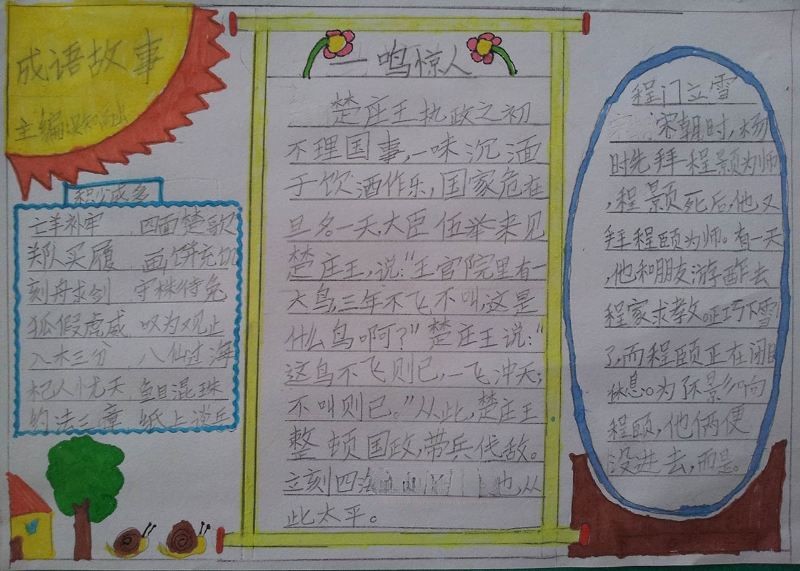 成语故事
主编
积少成多
亡羊补牢 四面楚歌
郑人买履 画饼充饥
刻舟求剑 守株待兔
狐假虎威 叹为观止
入木三分 八仙过海
杞人忧天 鱼目混珠
约法三章 纸上谈兵
一鸣惊人
楚庄王执政之初
不理国事,一味沉湎
于饮酒作乐,国家危在
旦名。一天,大臣伍举来见
楚庄王,说:“王宫院里有一
大鸟,三年不飞,不叫,这是
什么鸟啊?”楚庄王说:“
这鸟不飞则已,一飞冲天;
不叫则已。”从此,楚庄王
整顿国政,带兵伐敌。
立刻四海 也,从
此太平。
程门立雪
宋朝时,杨
时先拜程颢为师
,程颢死后,他又
拜程颐为师。有一天
,他和朋友游酢去
程家求教。正巧下雪
了,而程颐正在闭目
休息。为了不影响
程颐,他俩便
没进去,而是。